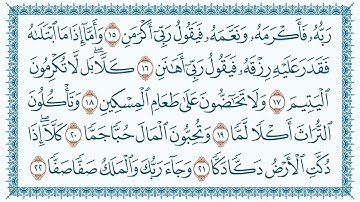 رَبُّهُۥ فَأَكۡرَمَهُۥ وَنَعَّمَهُۥ فَيَقُولُ رَبِّيٓ أَكۡرَمَنِ ١٥ وَأَمَّآ إِذَا مَا ٱبۡتَلَىٰهُ
فَقَدَرَ عَلَيۡهِ رِزۡقَهُۥ فَيَقُولُ رَبِّيٓ أَهَٰنَنِ ١٦ كَلَّاۖ بَل لَّا تُكۡرِمُونَ
ٱلۡيَتِيمَ ١٧ وَلَا تَحَٰٓضُّونَ عَلَىٰ طَعَامِ ٱلۡمِسۡكِينِ ١٨ وَتَأۡكُلُونَ
ٱلتُّرَاثَ أَكۡلٗا لَّمّٗا ١٩ وَتُحِبُّونَ ٱلۡمَالَ حُبّٗا جَمّٗا ٢٠ كَلَّآۖ إِذَا
دُكَّتِ ٱلۡأَرۡضُ دَكّٗا دَكّٗا ٢١ وَجَآءَ رَبُّكَ وَٱلۡمَلَكُ صَفّٗا صَفّٗا ٢٢